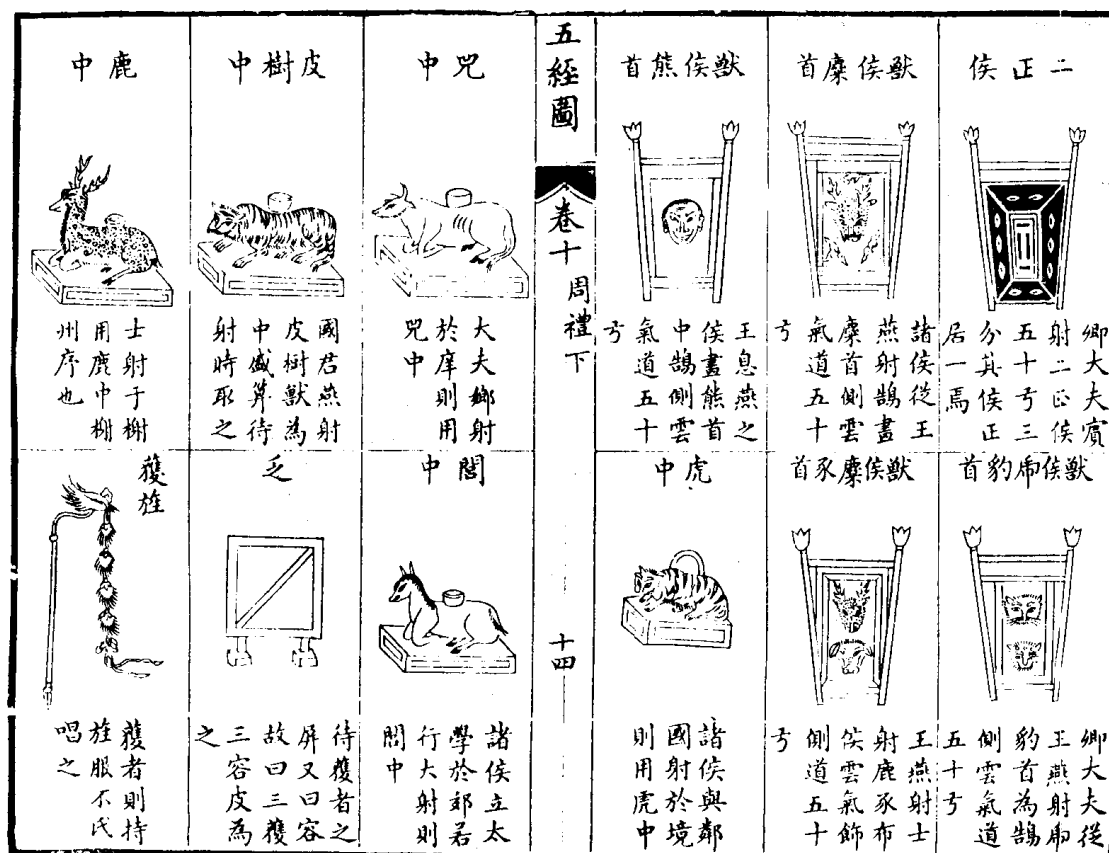 二正侯
卿大夫賓
射二正侯
五十弓三
分其侯正
居一焉
獸侯麋首
諸侯從王
燕射鵠畫
麋首側雲
氣道五十
弓
獸侯熊首
王息燕之
侯畫熊首
中鵠側雲
氣道五十
弓
獸侯乕豹首
卿大夫從
王燕射乕
豹首為鵠
側雲氣道
五十弓
獸侯麋豕首
王燕射士
射鹿豕布
侯雲氣飾
側道五十
弓
虎中
諸侯與鄰
國射於境
則用虎中
五經圖
卷十
周禮下
十四
兕中
大夫鄉射
於庠則用
兕中
皮樹中
國君燕射
皮樹獸為
中盛筭待
射時取之
鹿中
士射于榭
用鹿中榭
州序也
閭中
諸侯立太
學於郊若
行大射則
閭中
乏
待獲者之
屏又曰容
故曰三獲
三容皮為
之
獲旌
獲者則持
旌服不氏
唱之